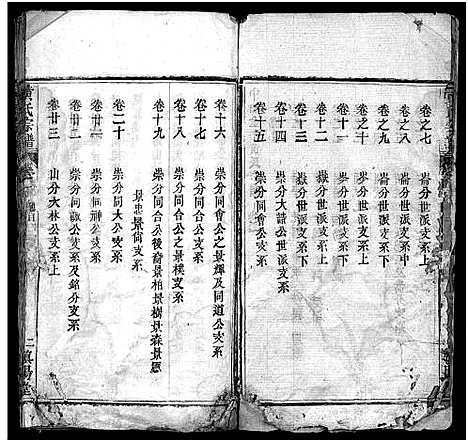 卷之七 崙分世派支系上
卷之八 崙分世派支系中
卷之九 崙分世派支系下
卷之十 嶽分世派支系上
卷十一 嶽分世派支系下
卷十四 崇分大諳公世派支系
卷十五 崇分同會公世派支系上
卷十六 崇分同會公之景輝及同道公支系
卷十七 崇分同合公支系
卷十八 崇分同合公之景樸支系
卷十九 崇分同合公後裔景柏景樹景森景恩
景忠景尚支系
卷二十 崇分同大公支系
卷廿一 崇分同神公支系
卷廿二 崇分同諏公支系及銘分支系
卷廿三 山分大林公支系上
氏宗譜
二